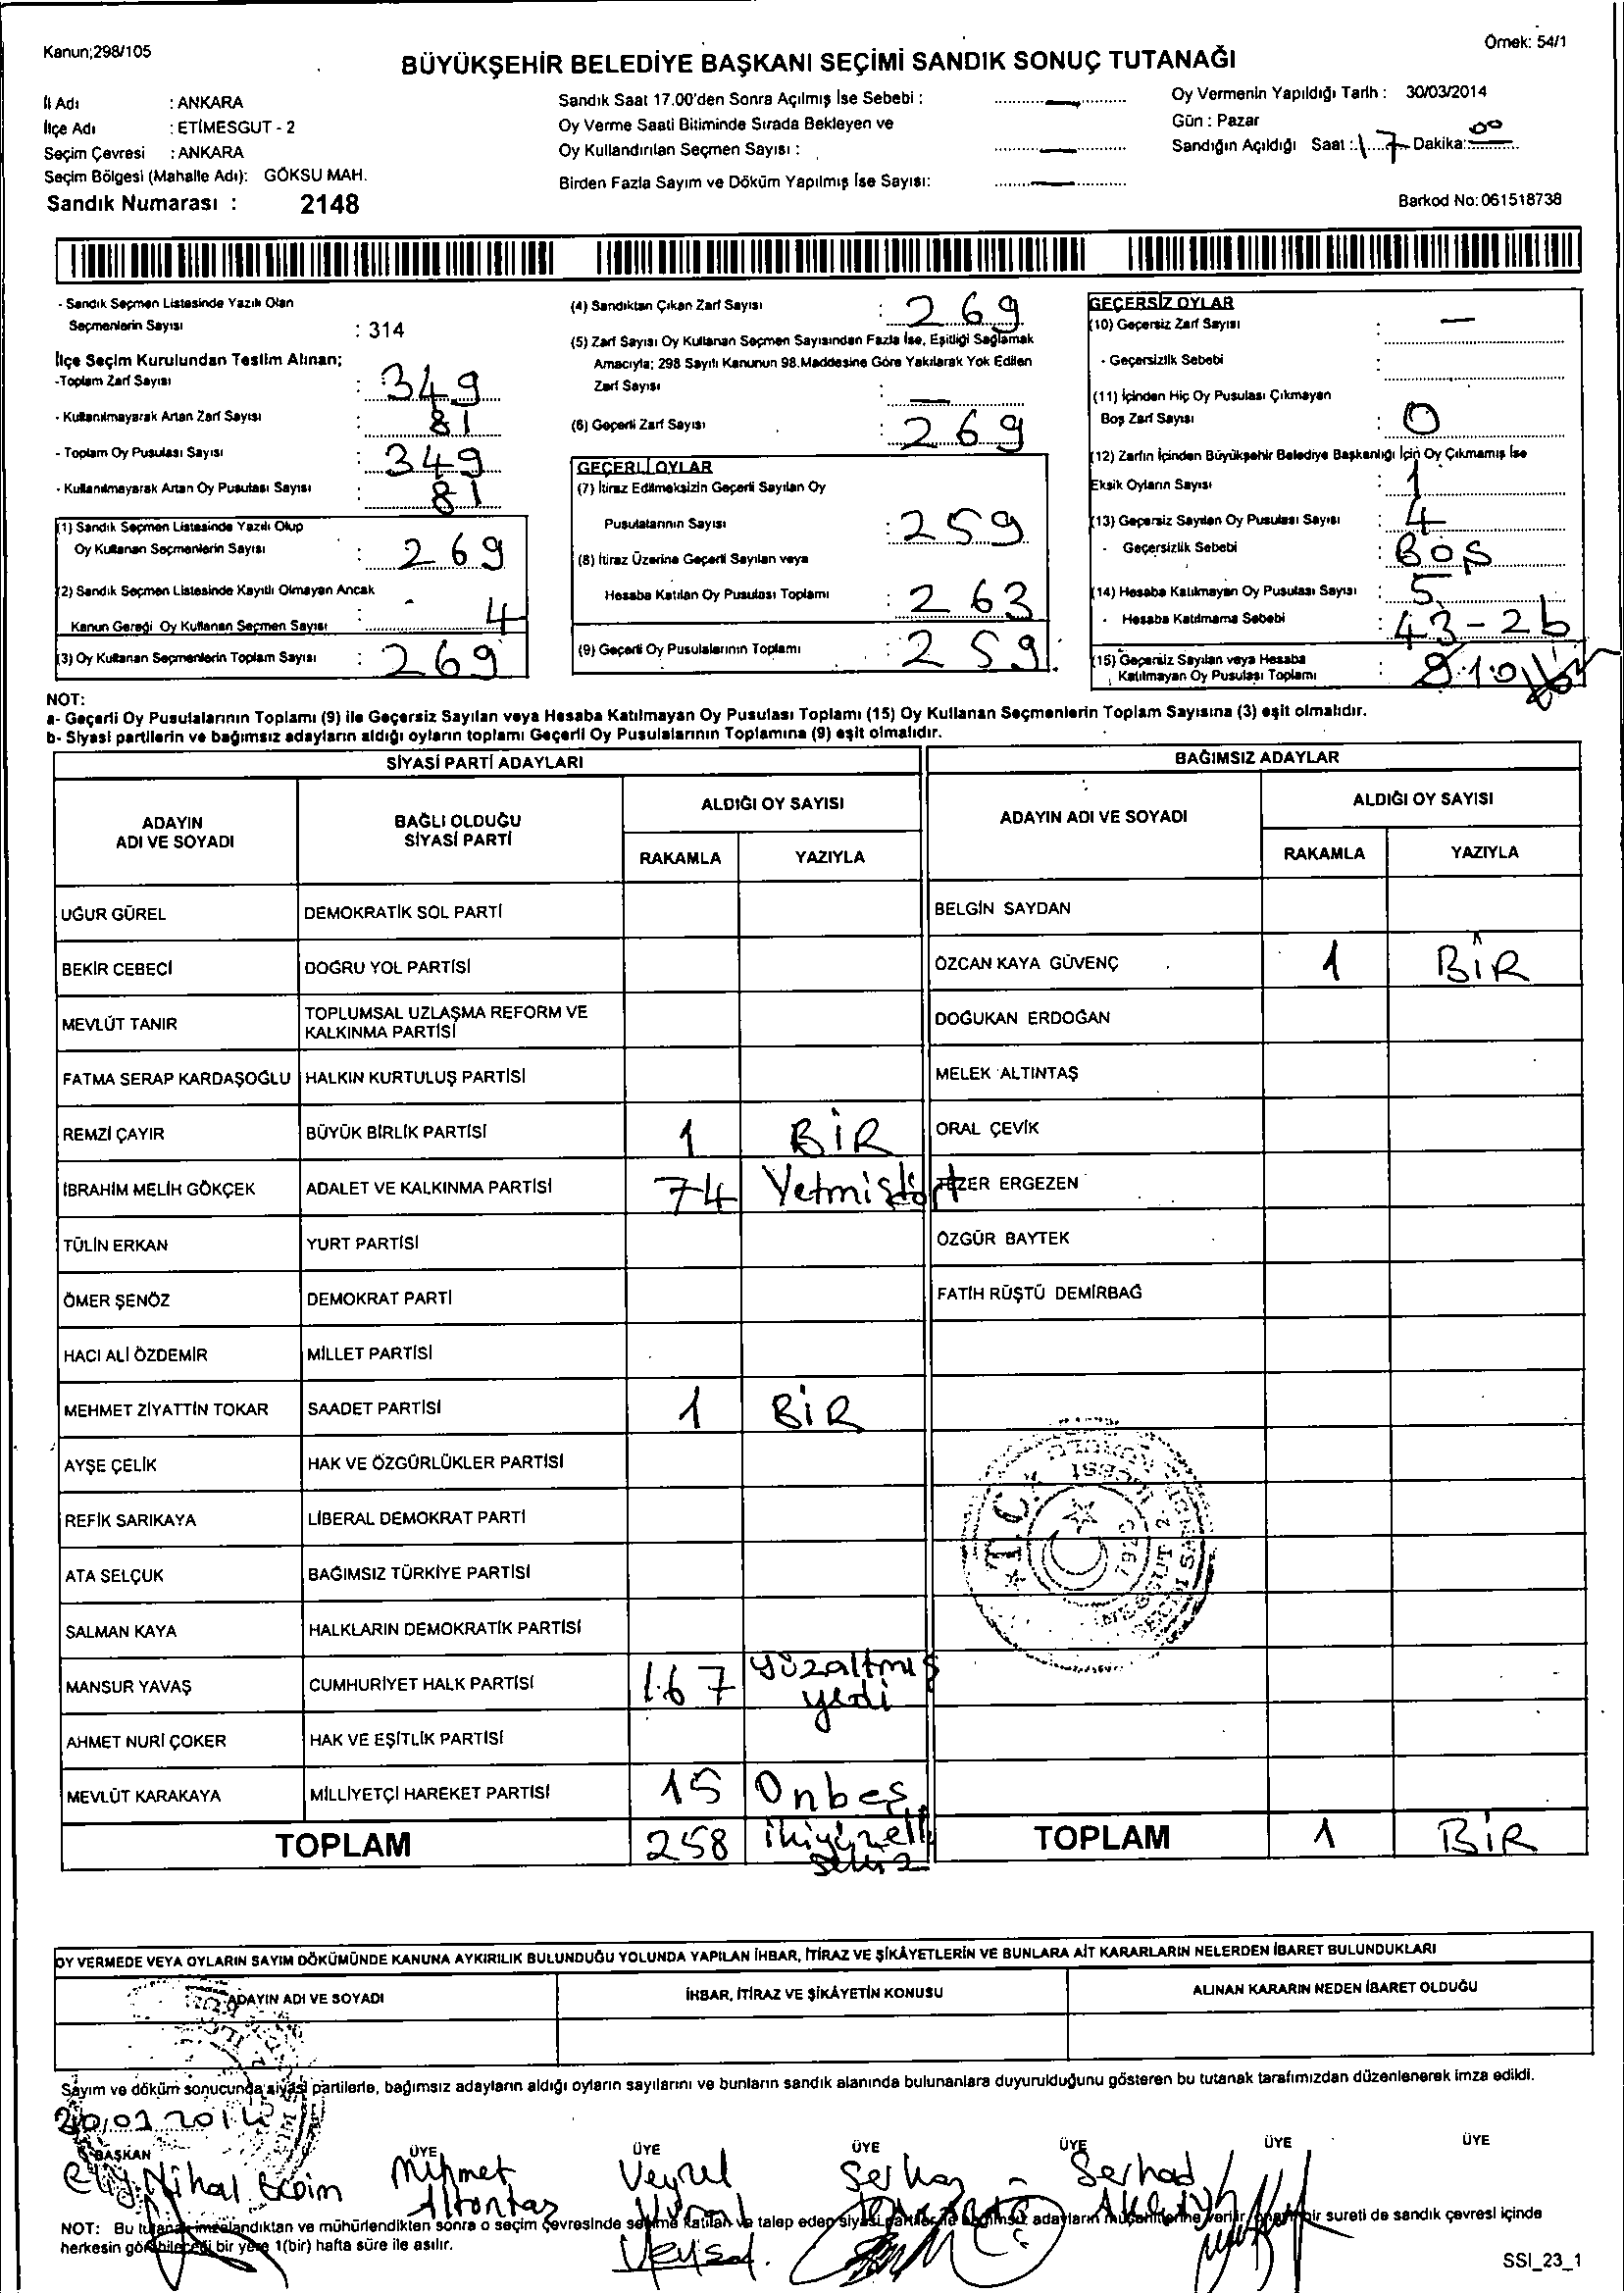 Kanun;298/105
Örnek: 54/1
BÜYÜKŞEHİR BELEDİYE BAŞKANI SEÇİMİ SANDIK SONUÇ TUTANAĞI
İl Adı : ANKARA
İlçe Adı : ETİMESGUT - 2
Seçim Çevresi : ANKARA
Seçim Bölgesi (Mahalle Adı): GÖKSU MAH.
Sandık Numarası : 2148
Sandık Saat 17.00'den Sonra Açılmış İse Sebebi :
Oy Verme Saati Bitiminde Sırada Bekleyen ve
Oy Kullandırılan Seçmen Sayısı :
Birden Fazla Sayım ve Döküm Yapılmış İse Sayısı:
Oy Vermenin Yapıldığı Tarih : 30/03/2014
Gün : Pazar
Sandığın Açıldığı Saat : 17 Dakika: 00
Barkod No: 061518738
- Sandık Seçmen Listesinde Yazılı Olan
Seçmenlerin Sayısı : 314
İlçe Seçim Kurulundan Teslim Alınan;
-Toplam Zarf Sayısı : 349
- Kullanılmayarak Artan Zarf Sayısı : 81
- Toplam Oy Pusulası Sayısı : 349
- Kullanılmayarak Artan Oy Pusulası Sayısı : 81
(1) Sandık Seçmen Listesinde Yazılı Olup
Oy Kullanan Seçmenlerin Sayısı : 269
(2) Sandık Seçmen Listesinde Kayıtlı Olmayan Ancak
Kanun Gereği Oy Kullanan Seçmen Sayısı : 4
(3) Oy Kullanan Seçmenlerin Toplam Sayısı : 269
(4) Sandıktan Çıkan Zarf Sayısı : 269
(5) Zarf Sayısı Oy Kullanan Seçmen Sayısından Fazla İse, Eşitliği Sağlamak
Amacıyla; 298 Sayılı Kanunun 98.Maddesine Göre Yakılarak Yok Edilen
Zarf Sayısı : —
(6) Geçerli Zarf Sayısı : 269
GEÇERLİ OYLAR
(7) İtiraz Edilmeksizin Geçerli Sayılan Oy
Pusulalarının Sayısı : 259
(8) İtiraz Üzerine Geçerli Sayılan veya
Hesaba Katılan Oy Pusulası Toplamı : 263
(9) Geçerli Oy Pusulalarının Toplamı : 259
GEÇERSİZ OYLAR
(10) Geçersiz Zarf Sayısı : —
- Geçersizlik Sebebi :
(11) İçinden Hiç Oy Pusulası Çıkmayan
Boş Zarf Sayısı : 0
(12) Zarfın İçinden Büyükşehir Belediye Başkanlığı İçin Oy Çıkmamış İse
Eksik Oyların Sayısı : 1
(13) Geçersiz Sayılan Oy Pusulası Sayısı : 4
- Geçersizlik Sebebi : BOŞ
(14) Hesaba Katılmayan Oy Pusulası Sayısı : 5
- Hesaba Katılmama Sebebi : 43-2b
(15) Geçersiz Sayılan veya Hesaba
Katılmayan Oy Pusulası Toplamı : 10
NOT:
a- Geçerli Oy Pusulalarının Toplamı (9) ile Geçersiz Sayılan veya Hesaba Katılmayan Oy Pusulası Toplamı (15) Oy Kullanan Seçmenlerin Toplam Sayısına (3) eşit olmalıdır.
b- Siyasi partilerin ve bağımsız adayların aldığı oyların toplamı Geçerli Oy Pusulalarının Toplamına (9) eşit olmalıdır.
SİYASİ PARTİ ADAYLARI
ADAYIN ADI VE SOYADI
BAĞLI OLDUĞU SİYASİ PARTİ
ALDIĞI OY SAYISI
RAKAMLA YAZIYLA
UĞUR GÜREL DEMOKRATİK SOL PARTİ
BEKİR CEBECİ DOĞRU YOL PARTİSİ
MEVLÜT TANIR TOPLUMSAL UZLAŞMA REFORM VE KALKINMA PARTİSİ
FATMA SERAP KARDAŞOĞLU HALKIN KURTULUŞ PARTİSİ
REMZİ ÇAYIR BÜYÜK BİRLİK PARTİSİ 1 BİR
İBRAHİM MELİH GÖKÇEK ADALET VE KALKINMA PARTİSİ 74 Yetmişdört
TÜLİN ERKAN YURT PARTİSİ
ÖMER ŞENÖZ DEMOKRAT PARTİ
HACI ALİ ÖZDEMİR MİLLET PARTİSİ
MEHMET ZİYATTİN TOKAR SAADET PARTİSİ 1 BİR
AYŞE ÇELİK HAK VE ÖZGÜRLÜKLER PARTİSİ
REFİK SARIKAYA LİBERAL DEMOKRAT PARTİ
ATA SELÇUK BAĞIMSIZ TÜRKİYE PARTİSİ
SALMAN KAYA HALKLARIN DEMOKRATİK PARTİSİ
MANSUR YAVAŞ CUMHURİYET HALK PARTİSİ 167 yüzaltmış yedi
AHMET NURİ ÇOKER HAK VE EŞİTLİK PARTİSİ
MEVLÜT KARAKAYA MİLLİYETÇİ HAREKET PARTİSİ 15 Onbeş
TOPLAM 258 ikiyüzelli sekiz
BAĞIMSIZ ADAYLAR
ADAYIN ADI VE SOYADI
ALDIĞI OY SAYISI
RAKAMLA YAZIYLA
BELGİN SAYDAN
ÖZCAN KAYA GÜVENÇ 1 BİR
DOĞUKAN ERDOĞAN
MELEK ALTINTAŞ
ORAL ÇEVİK
TEZER ERGEZEN
ÖZGÜR BAYTEK
FATİH RÜŞTÜ DEMİRBAĞ
T.C.
1923
TOPLAM 1 BİR
OY VERMEDE VEYA OYLARIN SAYIM DÖKÜMÜNDE KANUNA AYKIRILIK BULUNDUĞU YOLUNDA YAPILAN İHBAR, İTİRAZ VE ŞİKÂYETLERİN VE BUNLARA AİT KARARLARIN NELERDEN İBARET BULUNDUKLARI
ADAYIN ADI VE SOYADI
İHBAR, İTİRAZ VE ŞİKÂYETİN KONUSU
ALINAN KARARIN NEDEN İBARET OLDUĞU
Sayım ve döküm sonucunda siyasi partilerle, bağımsız adayların aldığı oyların sayılarını ve bunların sandık alanında bulunanlara duyurulduğunu gösteren bu tutanak tarafımızdan düzenlenerek imza edildi.
30.03.2014
BAŞKAN ÜYE ÜYE ÜYE ÜYE ÜYE ÜYE
Elif Nihal Mehmet Veysel Serkan Serhad
Altontaş
NOT: Bu tutanak imzalandıktan ve mühürlendikten sonra o seçim çevresinde seçime katılan ve talep eden siyasi partiler ile bağımsız adayların müşahitlerine verilir, onaylı bir sureti de sandık çevresi içinde
herkesin görebileceği bir yere 1(bir) hafta süre ile asılır.
Veysel.
SSI_23_1